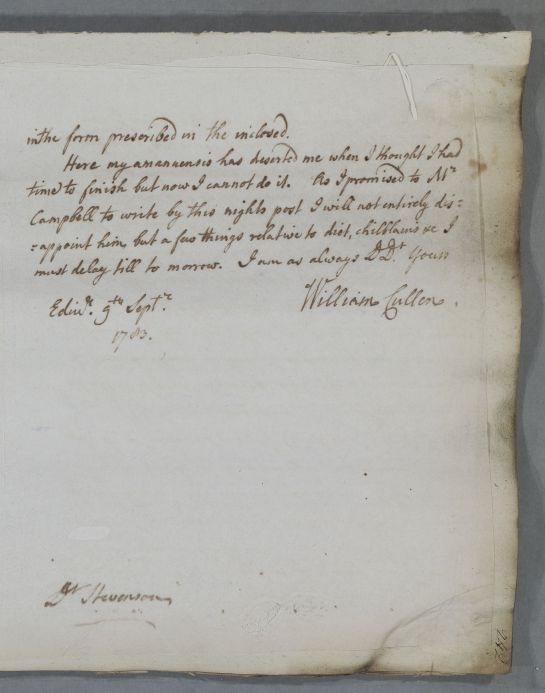 in the form prescribed in the inclosed.
Here my amanuensis has deserted me when I thought I had
time to finish but now I cannot do it. As I promised to Mr
Campbell to write by this nights post I will not entirely dis=
=appoint him, but a few things relative to diet, chilblains &c I
must delay till to morrow. I am as always D Dr Yours
William Cullen.
Edinr. 9th Septr.
1783.
Dr Stevenson